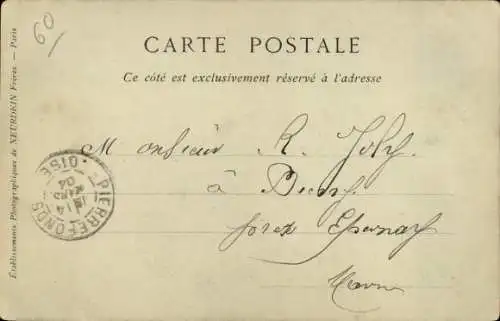 60
CARTE POSTALE
Ce côté est exclusivement réservé à l'adresse
Monsieur R. Joly
à
Epernay
Marne
PIERREFONDS OISE
14
MARS
04
Etablissements Photographiques de NEURDEIN Frères. — Paris